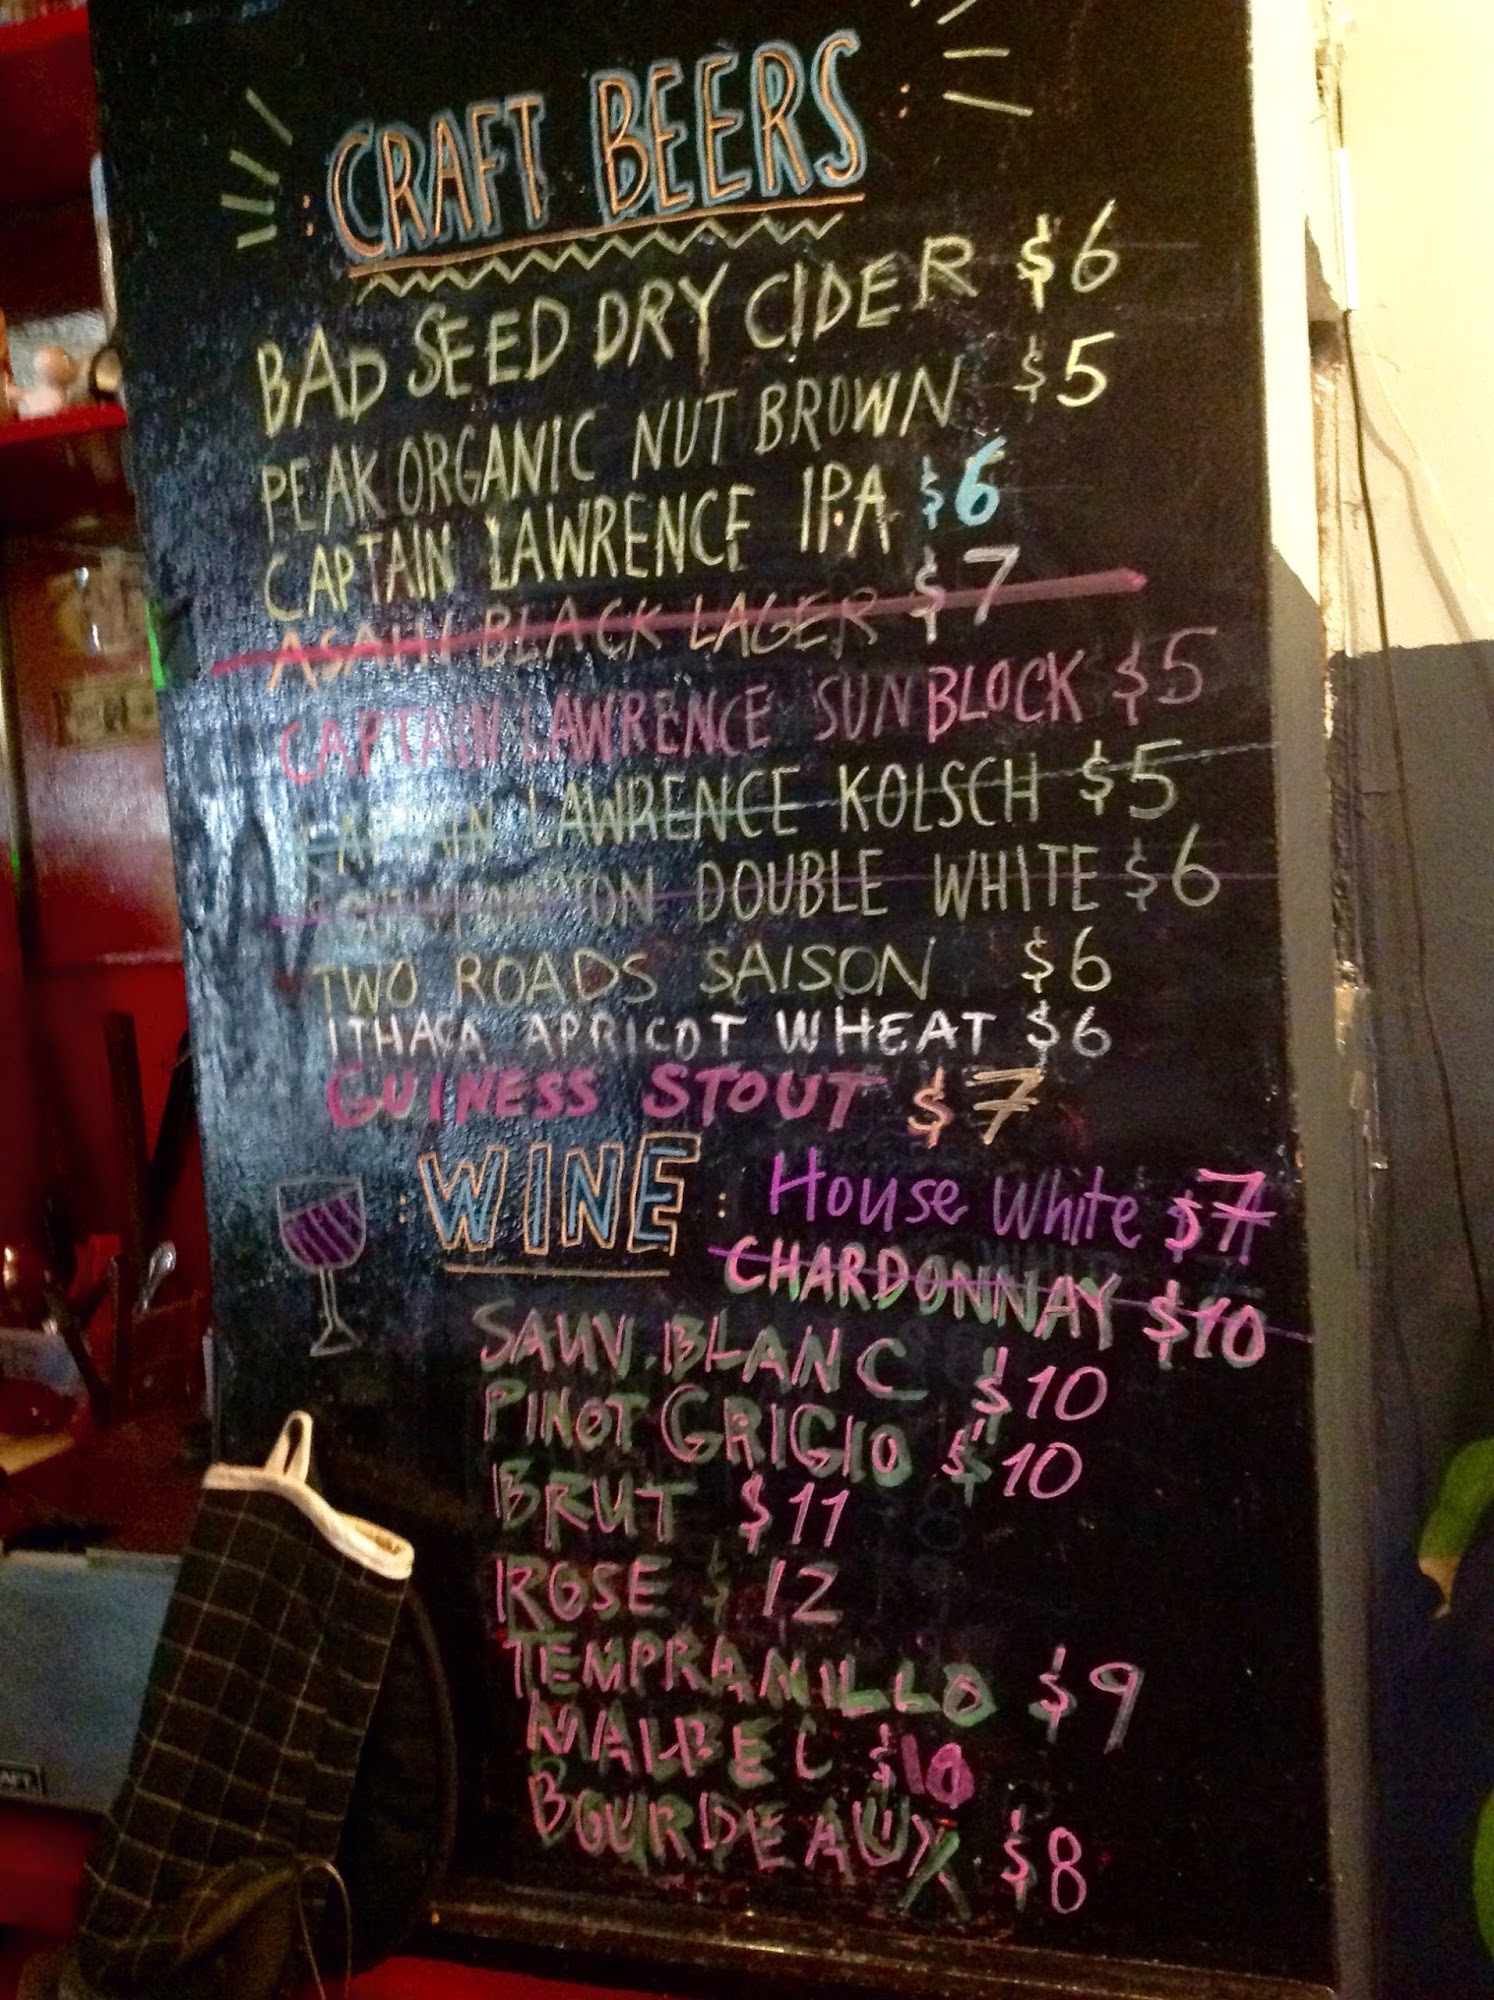 : CRAFT BEERS :
BAD SEED DRY CIDER $6
PEAK ORGANIC NUT BROWN $5
CAPTAIN LAWRENCE IPA $6
ASAHI BLACK LAGER $7
CAPTAIN LAWRENCE SUNBLOCK $5
CAPTAIN LAWRENCE KOLSCH $5
DOUBLE WHITE $6
TWO ROADS SAISON $6
ITHACA APRICOT WHEAT $6
GUINESS STOUT $7
: WINE : House White $7
CHARDONNAY $10
SAUV. BLANC $10
PINOT GRIGIO $10
BRUT $11
ROSE $12
TEMPRANILLO $9
MALBEC $10
BOURDEAUX $8